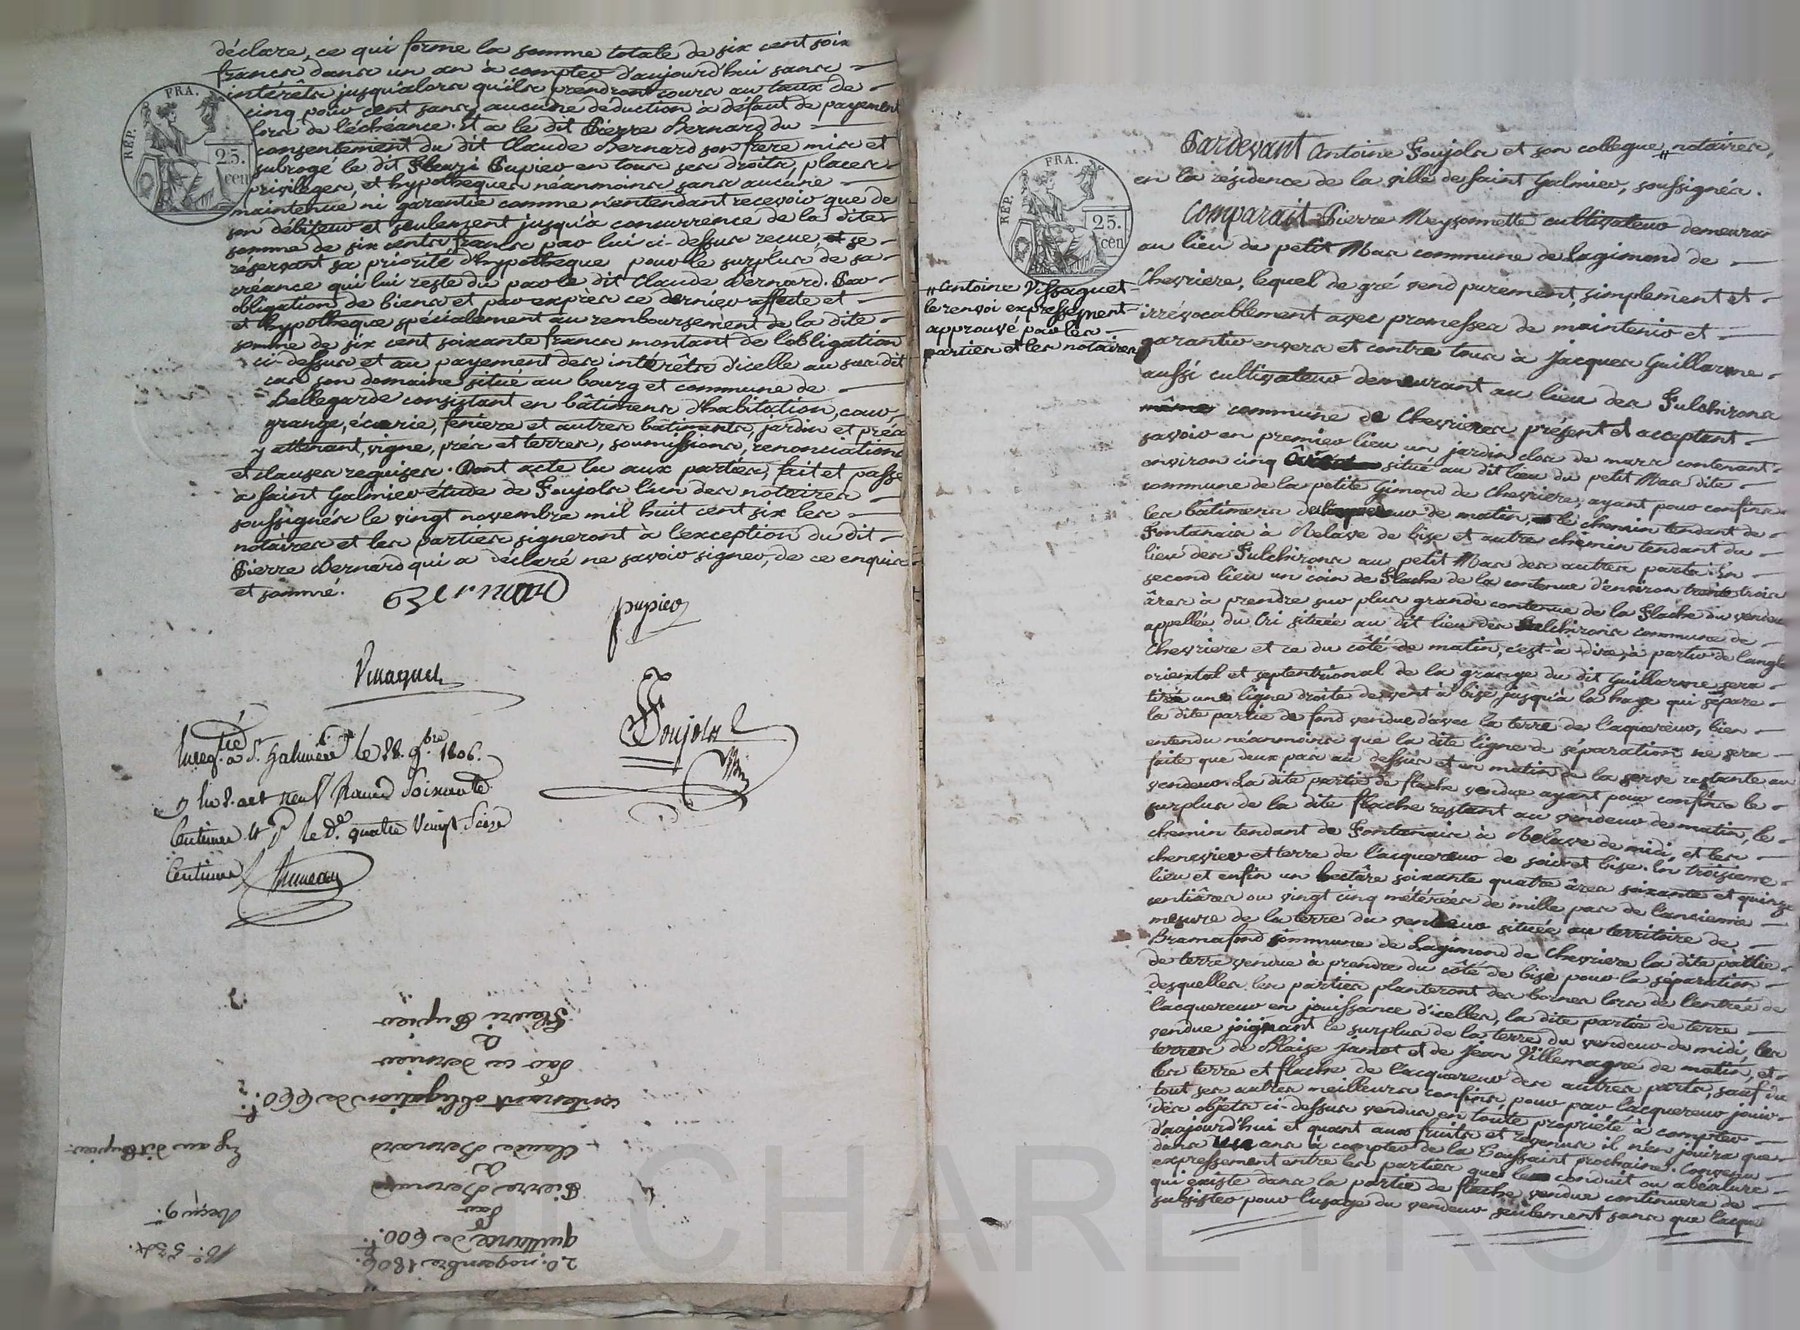 déclare, ce qui forme la somme totale de six cent soix
francs dans un an à compter d'aujourd'hui sans
intérêts jusqu'alors qu'ils prendront cours au taux de
cinq pour cent sans aucune déduction à défaut de payement
lors de l'échéance. Et a le dit Pierre Bernard du
consentement du dit Claude Bernard son frere mis et
subrogé le dit Fleuri Pupier en tous ses droits, places
privileges, et hypotheques néanmoins sans aucune
maintenue ni garantie comme n'entendant recevoir que de
son débiteur et seulement jusqu'à concurrence de la dite
somme de six cents francs par lui ci-dessus reçue, et se
réservant sa priorité d'hypotheque pour le surplus de sa
créance qui lui reste du par le dit Claude Bernard. Par
obligation de biens et par exprès ce dernier affecte et
et hypotheque spécialement au remboursement de la dite
somme de six cent soixante francs montant de l'obligation
ci-dessus et au payement des intérêts d'icelle au sus dit
cas son domaine situé au bourg et commune de
Bellegarde consistant en bâtimens d'habitation, cour
grange, écurie, feniere et autres batiments, jardin et prés
y attenant, vigne, prés et terres, soumissions, renonciations
et clauses requises. Dont acte lu aux parties, fait et passé
à Saint Galmier étude de Foujols l'un des notaires
soussignés le vingt novembre mil huit cent six les
notaires et les parties signeront à l'exception du dit
Pierre Bernard qui a déclaré ne savoir signer, de ce enquis
et sommé.
REP. FRA.
25. cen
Bernard
pupier
Vissaguet
Foujols
Enreg.té à St. Galmier le 28. 9bre 1806.
neuf francs soixante
Centimes quatre Vingt Seize
Centimes
20. novembre 1806.
quittance de 600.f
Par
Pierre Bernard
à
Claude Bernard
contenant obligation de 660.f
Par ce dernier
à
Fleuri Pupier
No. 534.
Exp. au dit Pupier
REP. FRA.
25. cen
Pardevant Antoine Foujols et son collegue " notaires,
en la résidence de la ville de Saint Galmier, soussignés.
Comparait Pierre Meysonnette cultivateur demeurant
au lieu de petit Mas commune de lagimond de
Chevriere, lequel de gré vend purement, simplement et
irrévocablement avec promesses de maintenir et
garantir envers et contre tous à Jacques Guillarme
aussi cultivateur demeurant au lieu des Fulchirons
même commune de Chevrieres présent et acceptant
savoir en premier lieu un jardin clos de murs contenant
environ cinq situé au dit lieu du petit Mas dite
commune de la petite Gimond de Chevriere, ayant pour confins
les bâtimens de matin, le chemin tendant de
Fontanais à Relave de bise et autre chemin tendant du
lieu des Fulchirons au petit Mas des autres parts. En
second lieu un coin de Flache de la contenue d'environ trente trois
âres à prendre sur plus grande contenue de la Flache du vendeur
appellée du Cri située au dit lieu des Fulchirons commune de
Chevriere et ce du côté de matin, c'est-à-dire, à partir de l'angle
oriental et septentrional de la grange du dit Guillarme sera
tirée une ligne droite de vent à bise jusqu'à la haye qui sépare
la dite partie de fond vendue d'avec la terre de l'acquereur, bien
entendu néanmoins que la dite ligne de séparation ne sera
faite que deux pas au dessus et en matin de la serve restante au
vendeur. La dite partie de flache vendue ayant pour confins le
surplus de la dite flache restant au vendeur de matin, le
chemin tendant de Fontanais à Relave de midi, et les
chenevier et terre de l'acquereur de soir et bise. En troisieme
lieu et enfin un hectare soixante quatre âres soixante et quinze
centiâres ou vingt cinq métérées de mille pas de l'ancienne
mesure de la terre du vendeur située au territoire de
Bramafond commune de Lagimond de Chevriere la dite partie
de terre vendue à prendre du côté de bise pour la séparation
desquelles les parties planteront des bornes lors de l'entrée de
l'acquereur en jouissance d'icelles, la dite partie de terre
vendue joignant le surplus de la terre du vendeur de midi, les
terres de Blaise Jamot et de Jean Villemagne de matin, et
les terre et flache de l'acquereur des autres parts, sauf du
tout ses autres meilleurs confins, pour par l'acquereur jouir
des objets ci-dessus vendus en toute propriété à compter
d'aujourd'hui et quant aux fruits et revenus il n'en jouira que
dans ans à compter de la Toussaint prochaine. Convenu
expressement entre les parties que le conduit ou abéalure
qui existe dans la partie de flache vendue continuera de
subsister pour l'usage du vendeur seulement sans que l'acque
" Antoine Vissaguet
le renvoi expressement
approuvé par les
parties et les notaires
CHARLYRON